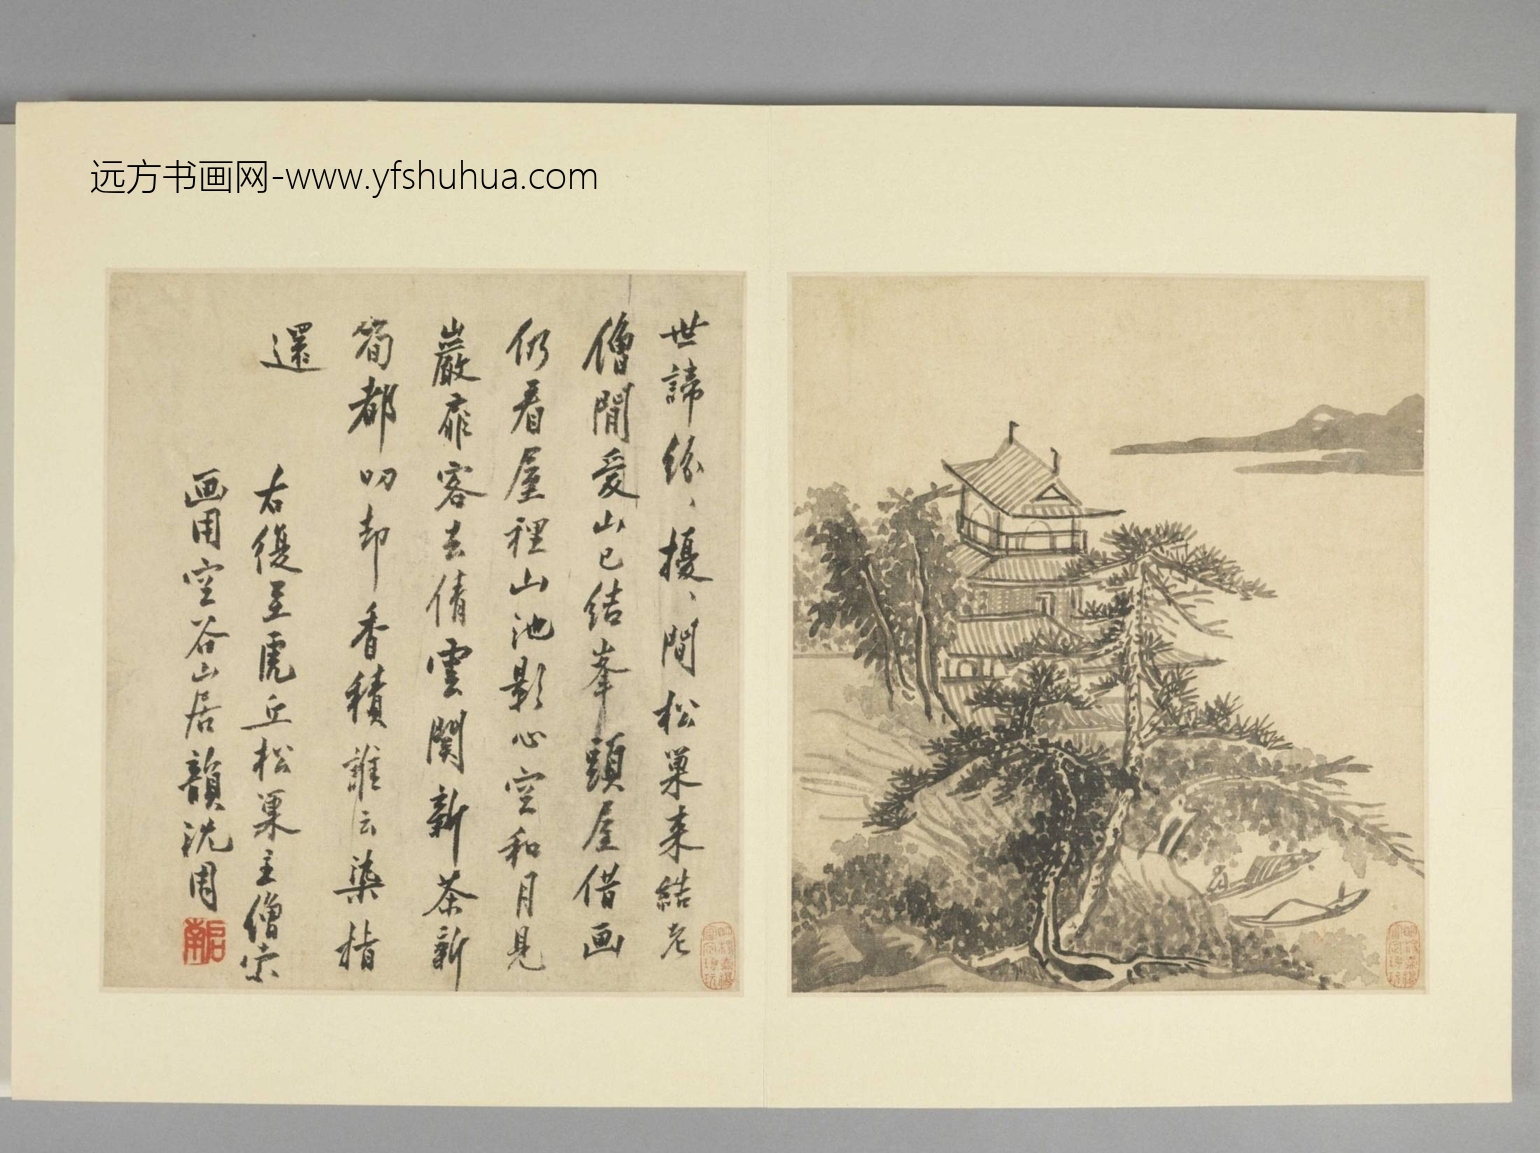 远方书画网-www.yfshuhua.com
世諦紛、擾、間松巢来結老
僧閒爱山已结峯頭屋借画
仍看屋裡山池影心空和月見
巖扉客去倩雲関新茶新
筍都叨却香積誰云染指
還
右復至虎丘松巢主僧索
画用空谷山居韻沈周
啓南